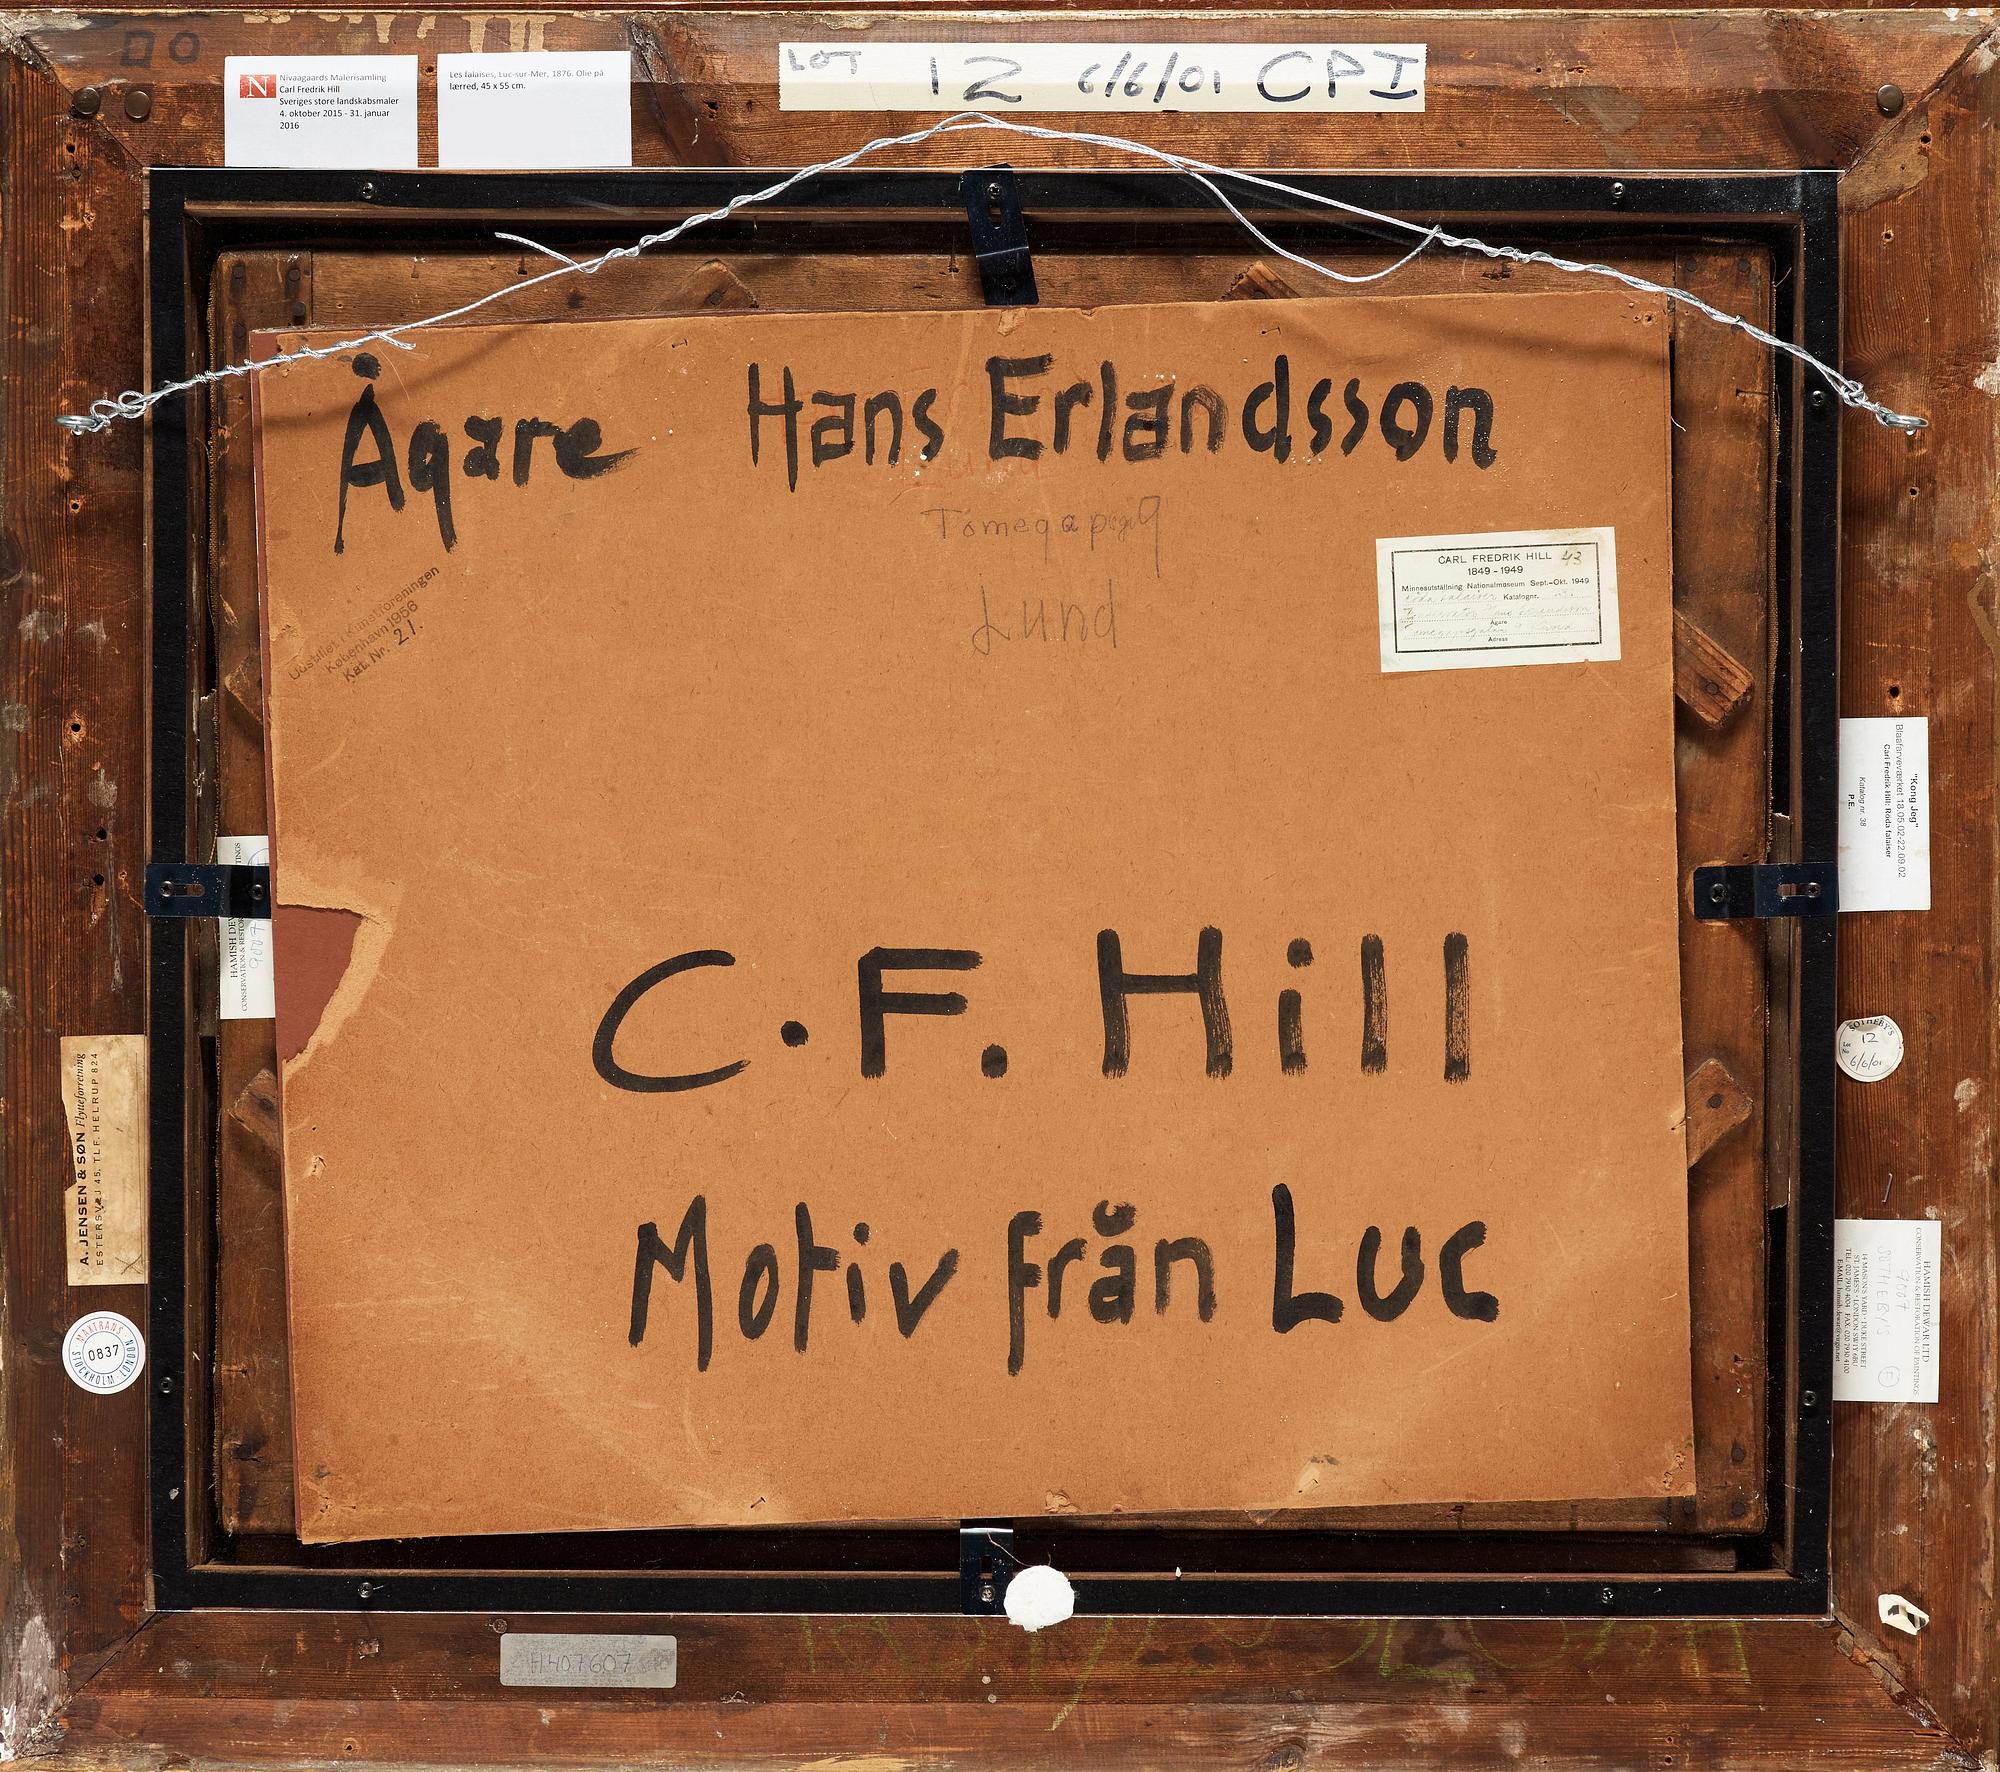 Nivaagaards Malerisamling
Carl Fredrik Hill
Sveriges store landskabsmaler
4. oktober 2015 - 31. januar
2016
Les falaises, Luc-sur-Mer, 1876. Olie på
lærred, 45 x 55 cm.
LOT 12 6/6/01 CPI
Ägare Hans Erlandsson
Lund
CARL FREDRIK HILL 43
1849 - 1949
Minnesutställning Nationalmuseum Sept.-Okt. 1949
Katalognr.
Ägare
Adress
Udstillet i Kunstforeningen
København 1956
Kat. Nr. 21.
"Kong Jeg"
Blaafarveværket 18.05.02-22.09.02
Carl Fredrik Hill: Röda falaiser
Katalog nr. 38
P.E.
HAMISH DEW
CONSERVATION & RESTOR
9007
C.F. Hill
Motiv från Luc
SOTHEBY'S
Lot No 12
6/6/01
A. JENSEN & SØN Flytteforretning
ESTERSVEJ 45. TLF. HELRUP 824
X
MAXTRANS
0837
STOCKHOLM · LONDON
HAMISH DEWAR LTD
CONSERVATION & RESTORATION OF PAINTINGS
SOTHEBYS
14 MASON'S YARD · DUKE STREET
ST. JAMES'S · LONDON SW1Y 6BU
TEL: 020 7930 4004 · FAX: 020 7930 4100
H407607